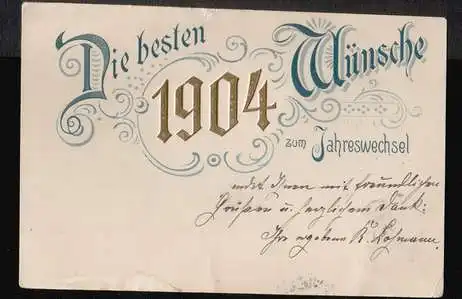 Die besten
Wünsche
1904
zum Jahreswechsel
Ihnen mit freundlichen
Grüßen u. herzlichem Dank.
Ihr ergebener K. Hofmann.